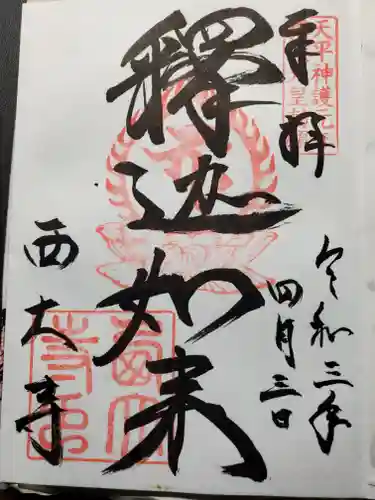 奉拝
天平神護元年
令和三年
四月三日
釋迦如来
西大寺